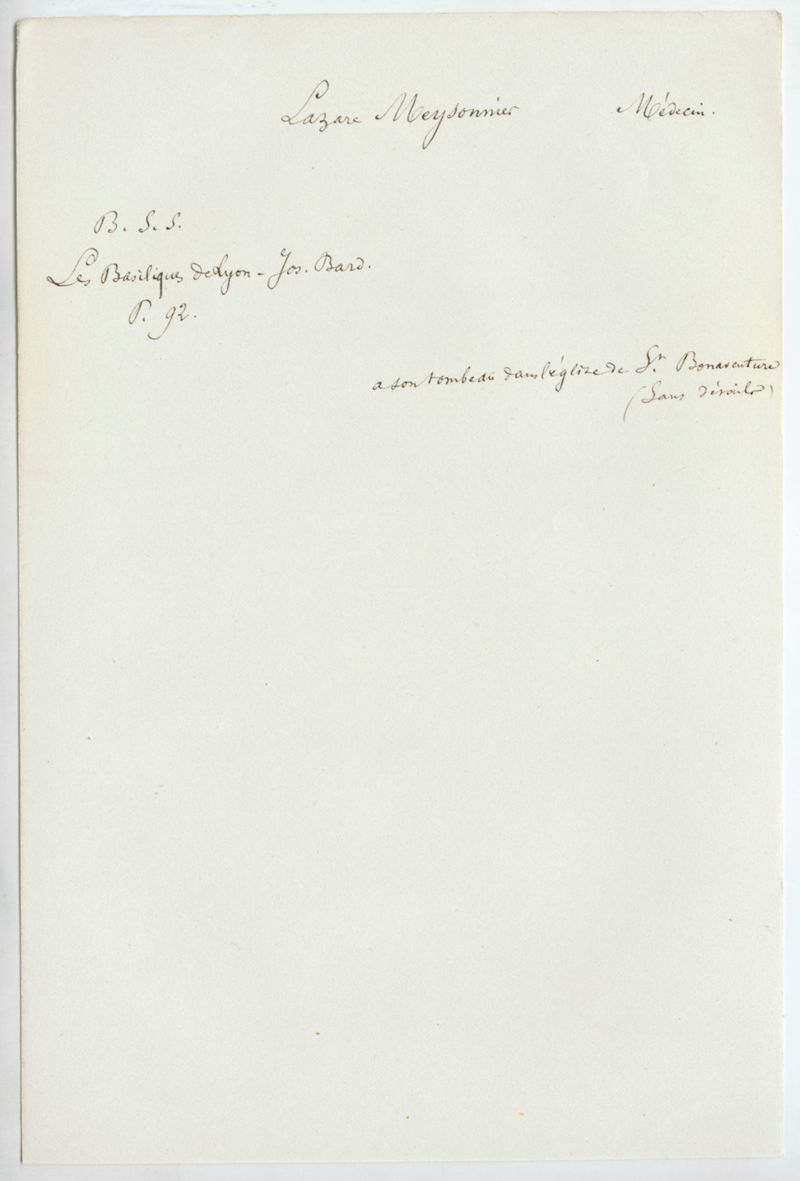 Lazare Meysonnier Médecin.
B. S. S.
Les Basiliques de Lyon - Jos. Bard.
P. 92.
a son tombeau dans l'église de St. Bonaventure
(Sans